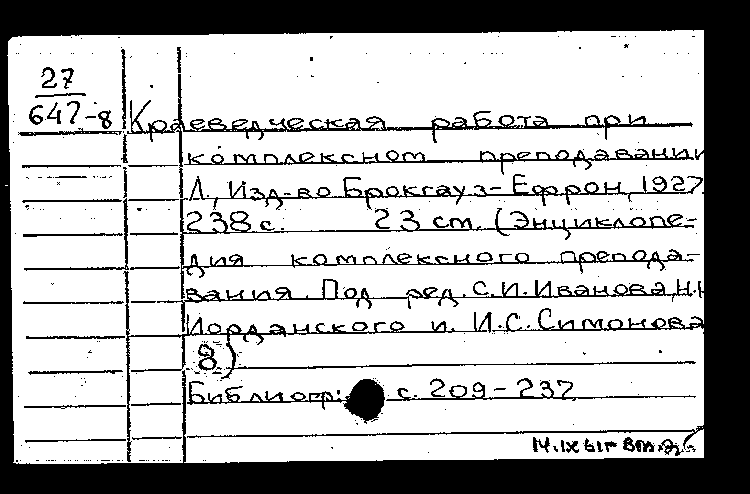 27
647-8
Краеведческая работа при
комплексном преподавании
Л., Изд-во Брокгауз-Ефрон, 1927
238 с. 23 см. (Энциклопе-
дия комплексного препода-
вания. Под ред. С.И. Иванова, Н.Н
Иорданского и И.С. Симонова
8)
Библиогр: с. 209-237
14.IX 61г